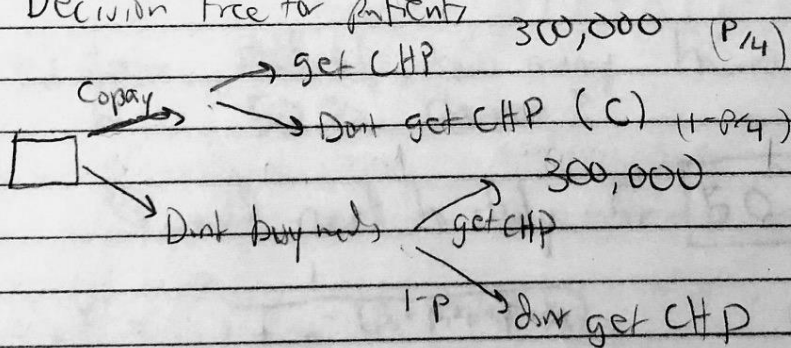 Decision Tree for Patients
300,000 (P/4)
get CHP
Copay
Dont get CHP (C) (1-P/4)
300,000
Dont buy meds
get CHP
1-P
dont get CHP